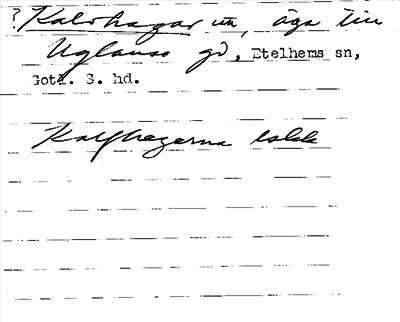 ? Kalvhagar utm, äga till
Uglause gd, Etelhems sn,
Gotl. S. hd.
Kalfhagarna